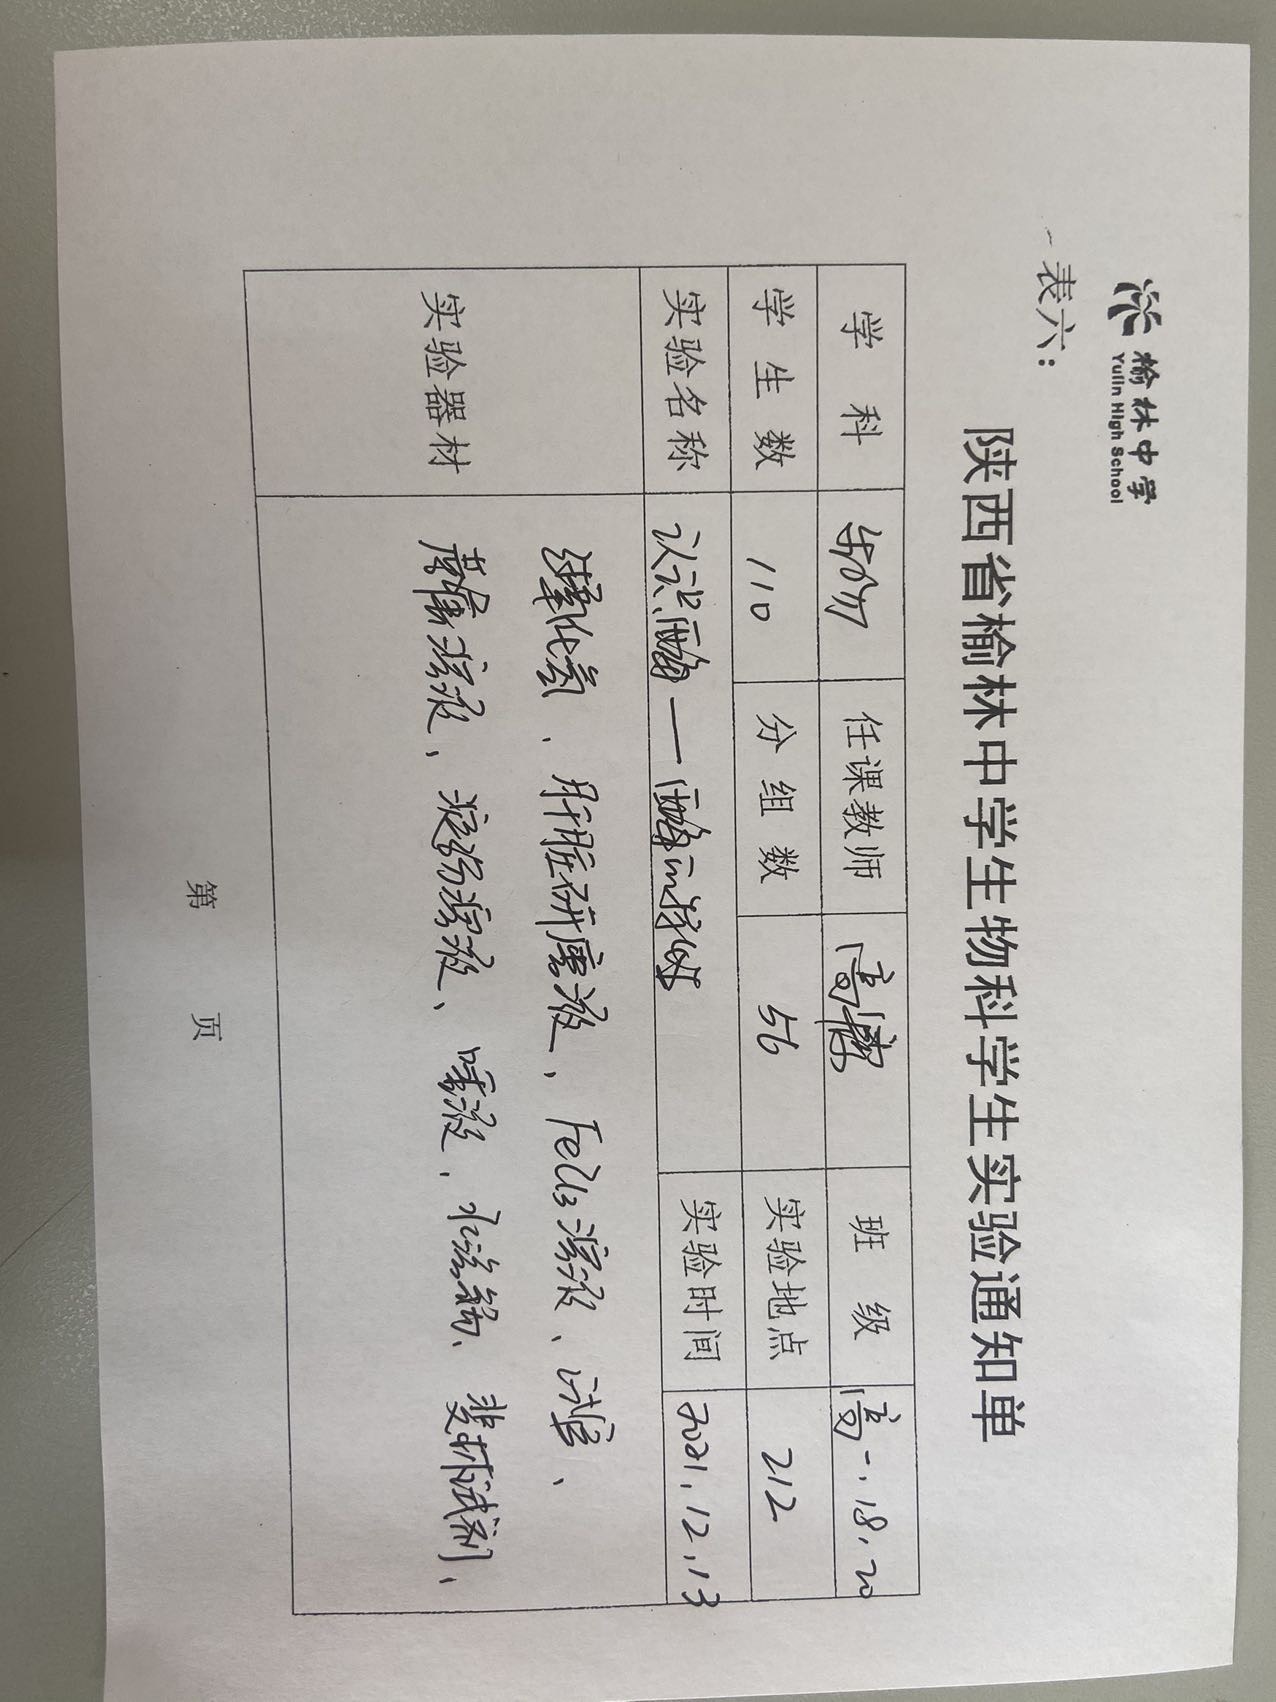 榆林中学
Yulin High School
表六：
陕西省榆林中学生物科学学生实验通知单
学科 生物 任课教师 高 班级 高一.18.20
学生数 110 分组数 56 实验地点 212
实验名称 认识酶——酶的特性 实验时间 2021.12.13
实验器材
过氧化氢、肝脏研磨液、FeCl3溶液、试管、
蔗糖溶液、淀粉溶液、唾液、恒温箱、斐林试剂、
第 页